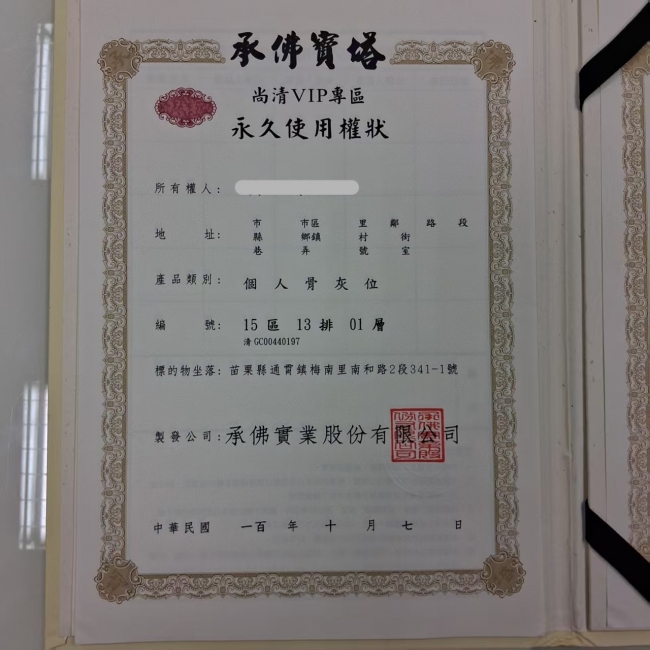 承佛寶塔
尚清VIP專區
永久使用權狀
所有權人：
地 址： 市 市區 里 鄰 路 段
縣 鄉鎮 村 街
巷 弄 號 室
產品類別： 個人骨灰位
編 號： 15 區 13 排 01 層
清 GC00440197
標的物坐落： 苗栗縣通霄鎮梅南里南和路2段341-1號
製發公司： 承佛實業股份有限公司
中華民國 一百 年 十 月 七 日